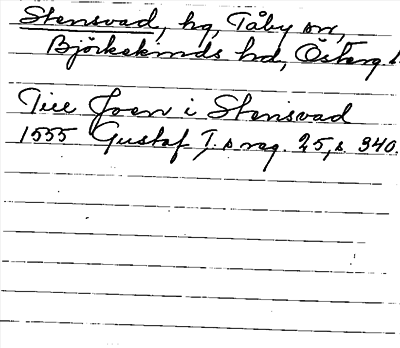 Stensvad, hg, Tåby sn,
Björkekinds hd, Österg.
Till Joen i Stensvad
1555 Gustaf I:s reg. 25, s. 340.